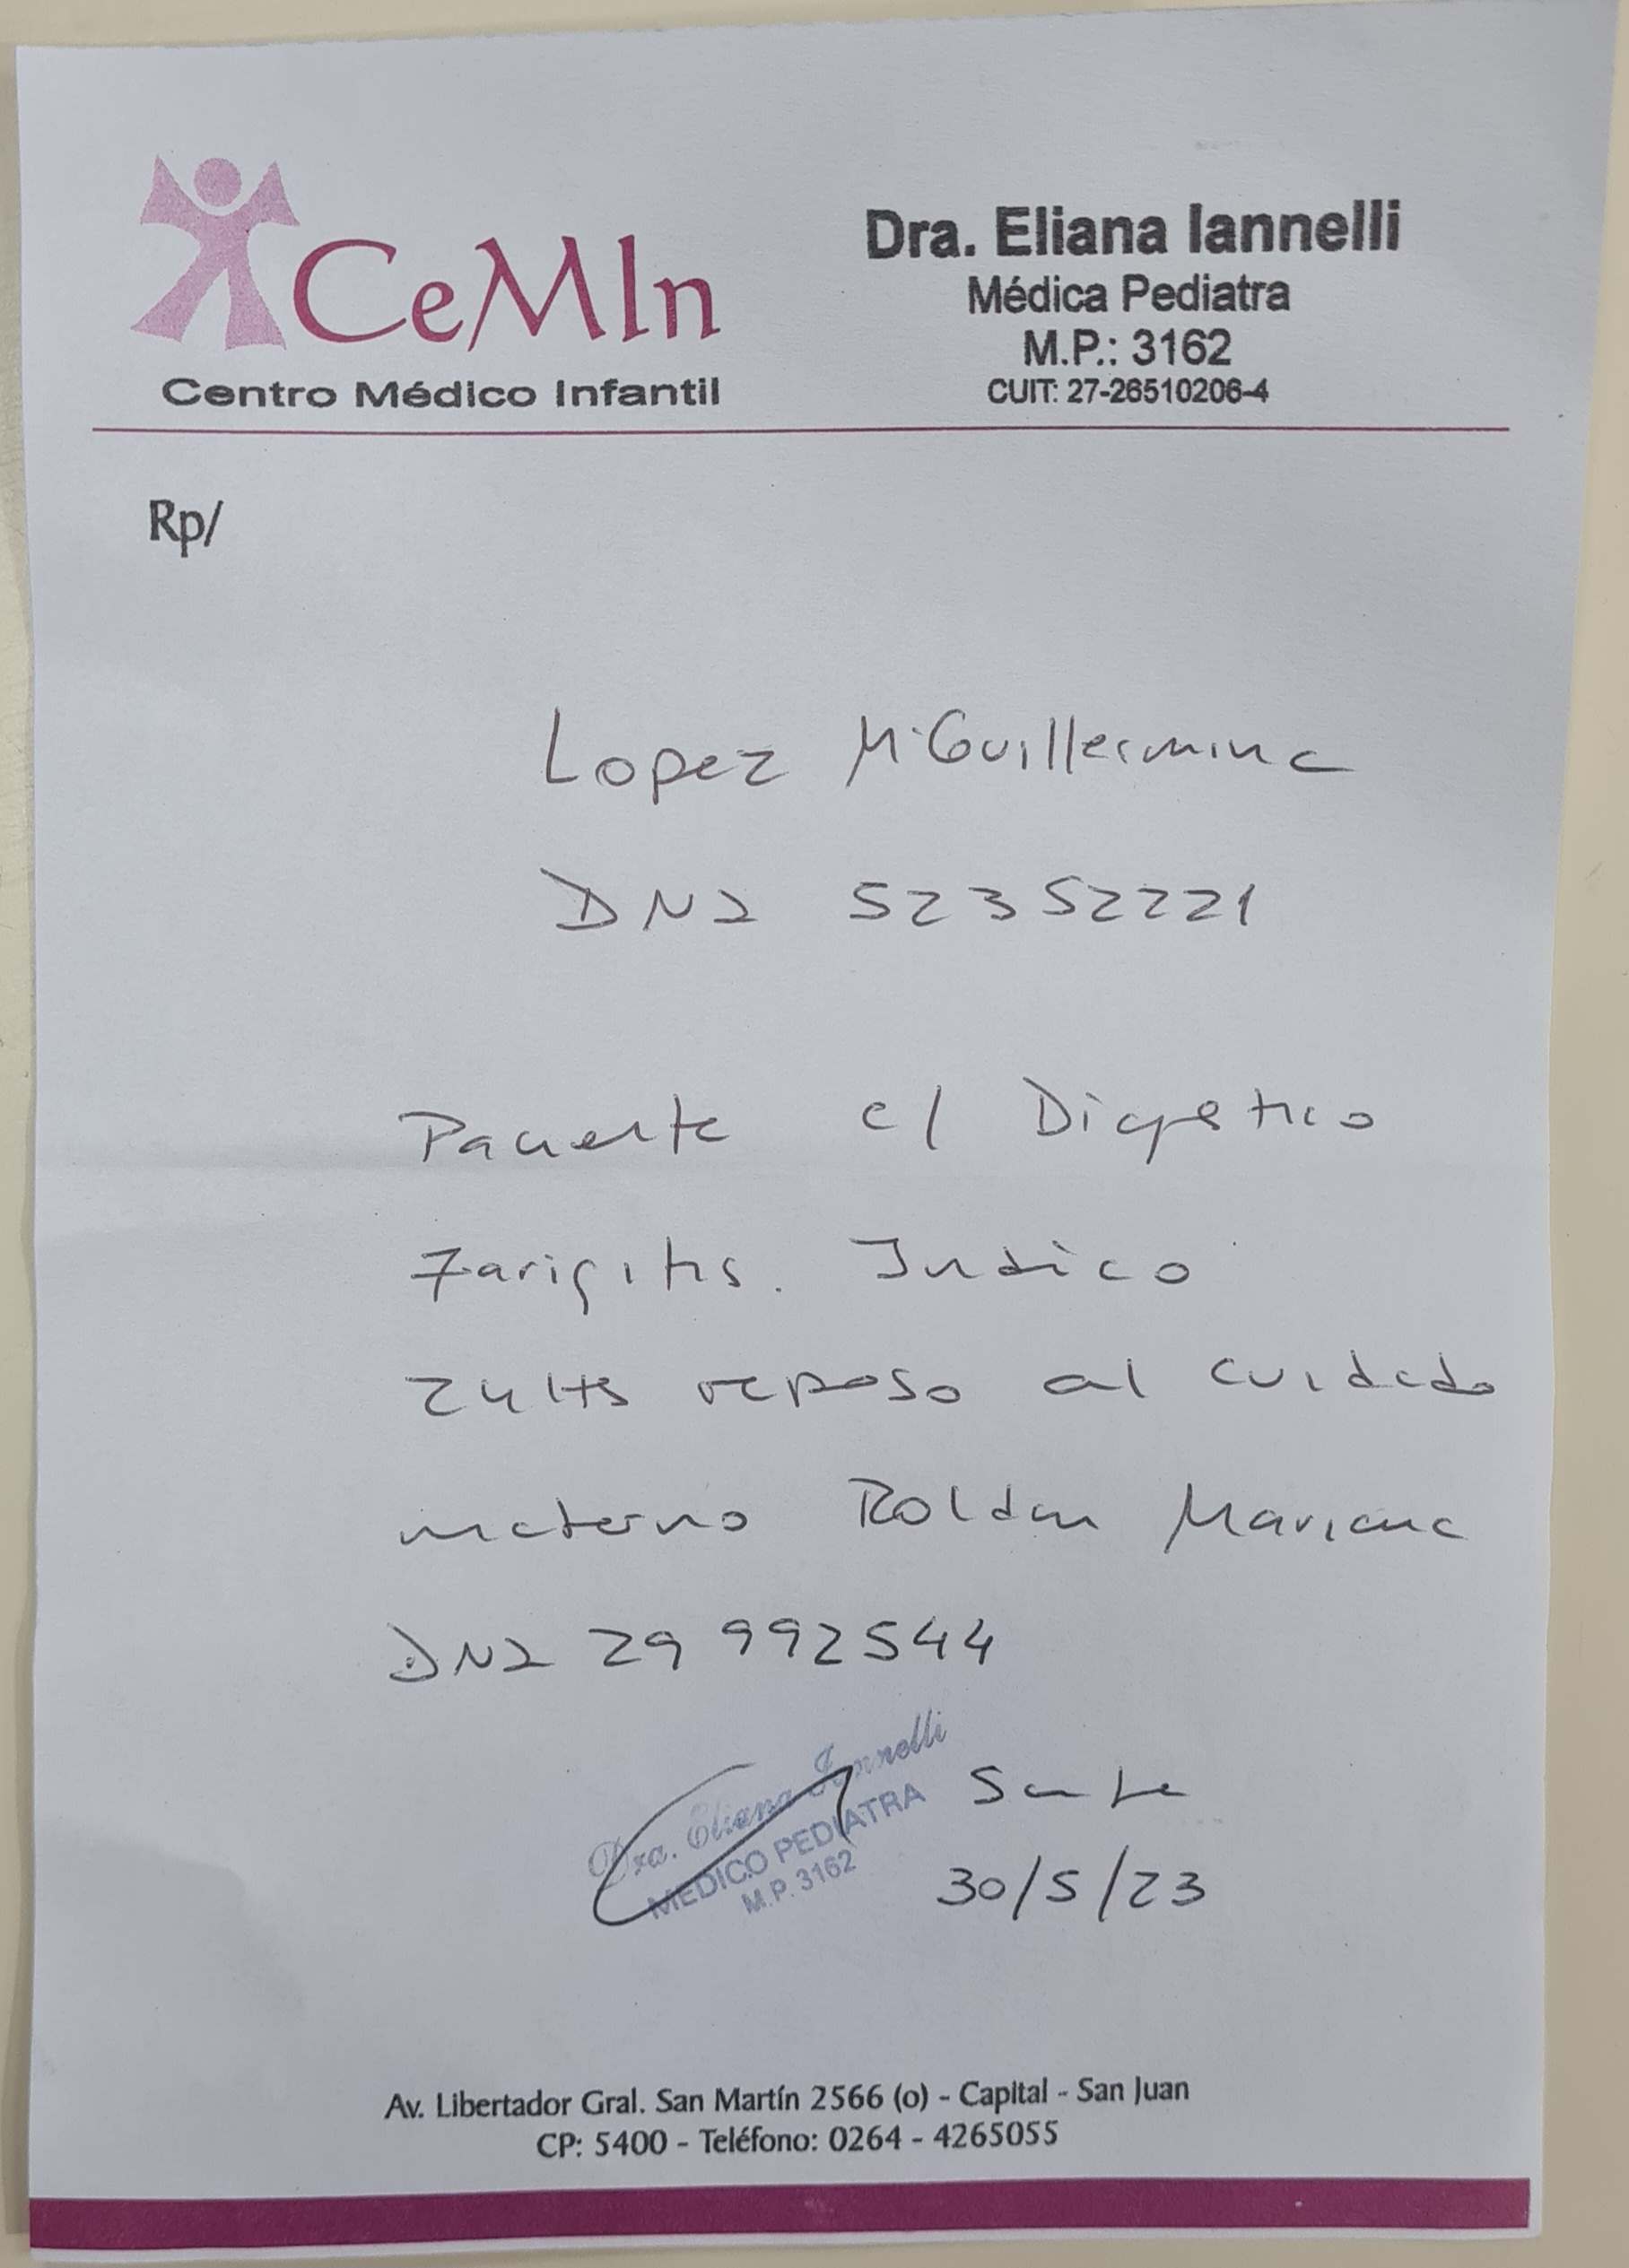 CeMIn
Centro Médico Infantil
Dra. Eliana Iannelli
Médica Pediatra
M.P.: 3162
CUIT: 27-26510206-4
Rp/
Lopez M. Guillermina
DNI 52352221
Paciente c/ Digóstico
Farigitis. Indico
24 Hs reposo al cuidado
materno Roldan Mariana
DNI 29 992544
Dra. Eliana Iannelli
MEDICO PEDIATRA
M.P. 3162
30/5/23
Av. Libertador Gral. San Martín 2566 (o) - Capital - San Juan
CP: 5400 - Teléfono: 0264 - 4265055